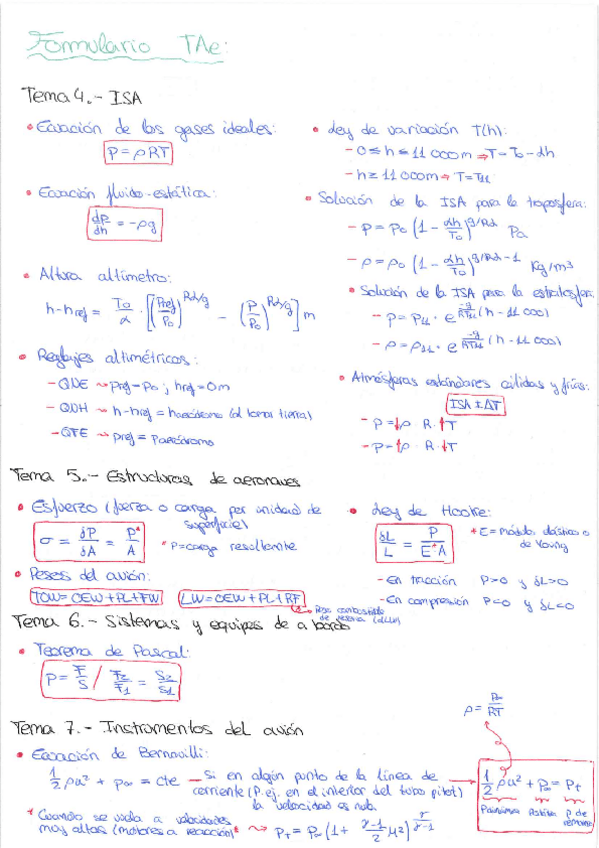 Formulario TAe:
Tema 4.- ISA
• Ecuación de los gases ideales:
P = ρRT
• Ecuación fluido-estática:
dP/dh = -ρg
• Altura altímetro:
h-href = To/α · [(Pref/Po)^Rα/g - (P/Po)^Rα/g] m
• Reglajes altimétricos:
- QNE ⇝ pref=po ; href=0m
- QNH ⇝ h-href = haeródromo (al toma tierra)
- QFE ⇝ pref = paeródromo
• Ley de variación T(h):
- 0 ≤ h ≤ 11 000m ⇒ T = To - αh
- h ≥ 11 000m ⇒ T = T11
• Solución de la ISA para la troposfera:
- P = Po (1 - αh/To)^g/Rα Pa
- ρ = ρo (1 - αh/To)^g/Rα - 1 Kg/m³
• Solución de la ISA para la estratosfera:
- P = P11 · e^-g/RT11 (h - 11 000)
- ρ = ρ11 · e^-g/RT11 (h - 11 000)
• Atmósferas estándares cálidas y frías:
ISA ± ΔT
- P = ↓ρ · R · ↑T
- P = ↑ρ · R · ↓T
Tema 5.- Estructuras de aeronaves
• Esfuerzo (fuerza o carga por unidad de
superficie)
σ = δP/δA = P*/A
* P = carga resultante
• Pesos del avión:
TOW = OEW + PL + FW
LW = OEW + PL + RF
↳ Peso combustible
de reserva
• Ley de Hooke:
δL/L = P/E*A
* E = módulo elástico o
de Young
- En tracción P>0 y δL>0
- En compresión P<0 y δL<0
Tema 6.- Sistemas y equipos de a bordo
• Teorema de Pascal:
P = F/S / F2/F1 = S2/S1
Tema 7.- Instrumentos del avión
ρ = P∞/RT
• Ecuación de Bernouilli:
1/2 ρu² + p∞ = cte — Si en algún punto de la línea de
corriente (P. ej. en el interior del tubo pitot)
la velocidad es nula.
→ 1/2 ρu² + P∞ = Pt
Pdinámica Pestática P de
remanso
* Cuando se vuela a velocidades
muy altas (motores a reacción)* ⇝ Pt = P∞ (1 + γ-1/2 M²)^γ/γ-1